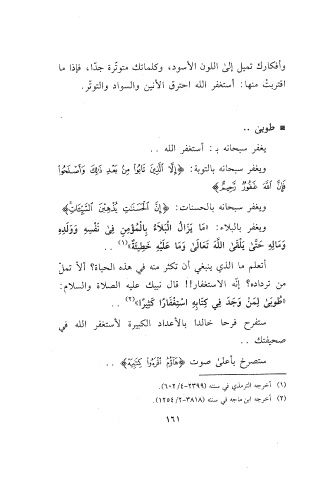 وأفكارك تميل إلى اللون الأسود، وكلماتك متوتّرة جدًا، فإذا ما
اقتربتْ منها: أستغفر الله احترق الأنين والسواد والتوتّر.
▪ طوبىٰ ..
يغفر سبحانه بـ: أستغفر الله ..
ويغفر سبحانه بالتوبة: ﴿إِلَّا الَّذِينَ تَابُوا مِنْ بَعْدِ ذَلِكَ وَأَصْلَحُوا
فَإِنَّ اللَّهَ غَفُورٌ رَحِيمٌ﴾
ويغفر سبحانه بالحسنات: ﴿إِنَّ الْحَسَنَاتِ يُذْهِبْنَ السَّيِّئَاتِ﴾
ويغفر بالبلاء: «مَا يَزَالُ الْبَلَاءُ بِالْمُؤْمِنِ فِي نَفْسِهِ وَوَلَدِهِ
وَمَالِهِ حَتَّىٰ يَلْقَى اللَّهَ تَعَالَىٰ وَمَا عَلَيْهِ خَطِيئَةٌ»(١) ..
أتعلم ما الذي ينبغي أن تكثر منه في هذه الحياة؟ ألا تملّ
من ترداده؟ إنّه الاستغفار!! قال نبيك عليه الصلاة والسلام:
«طُوبَىٰ لِمَنْ وَجَدَ فِي كِتَابِهِ اسْتِغْفَارًا كَثِيرًا»(٢) ..
ستفرح فرحا خالدا بالأعداد الكبيرة لأستغفر الله في
صحيفتك ..
ستصرخ بأعلىٰ صوت ﴿هَاؤُمُ اقْرَءُوا كِتَابِيَهْ﴾ ..
(١) أخرجه الترمذي في سننه (٢٣٩٩-٦٠٢/٤).
(٢) أخرجه ابن ماجه في سننه (٣٨١٨-١٢٥٤/٢).
١٦١